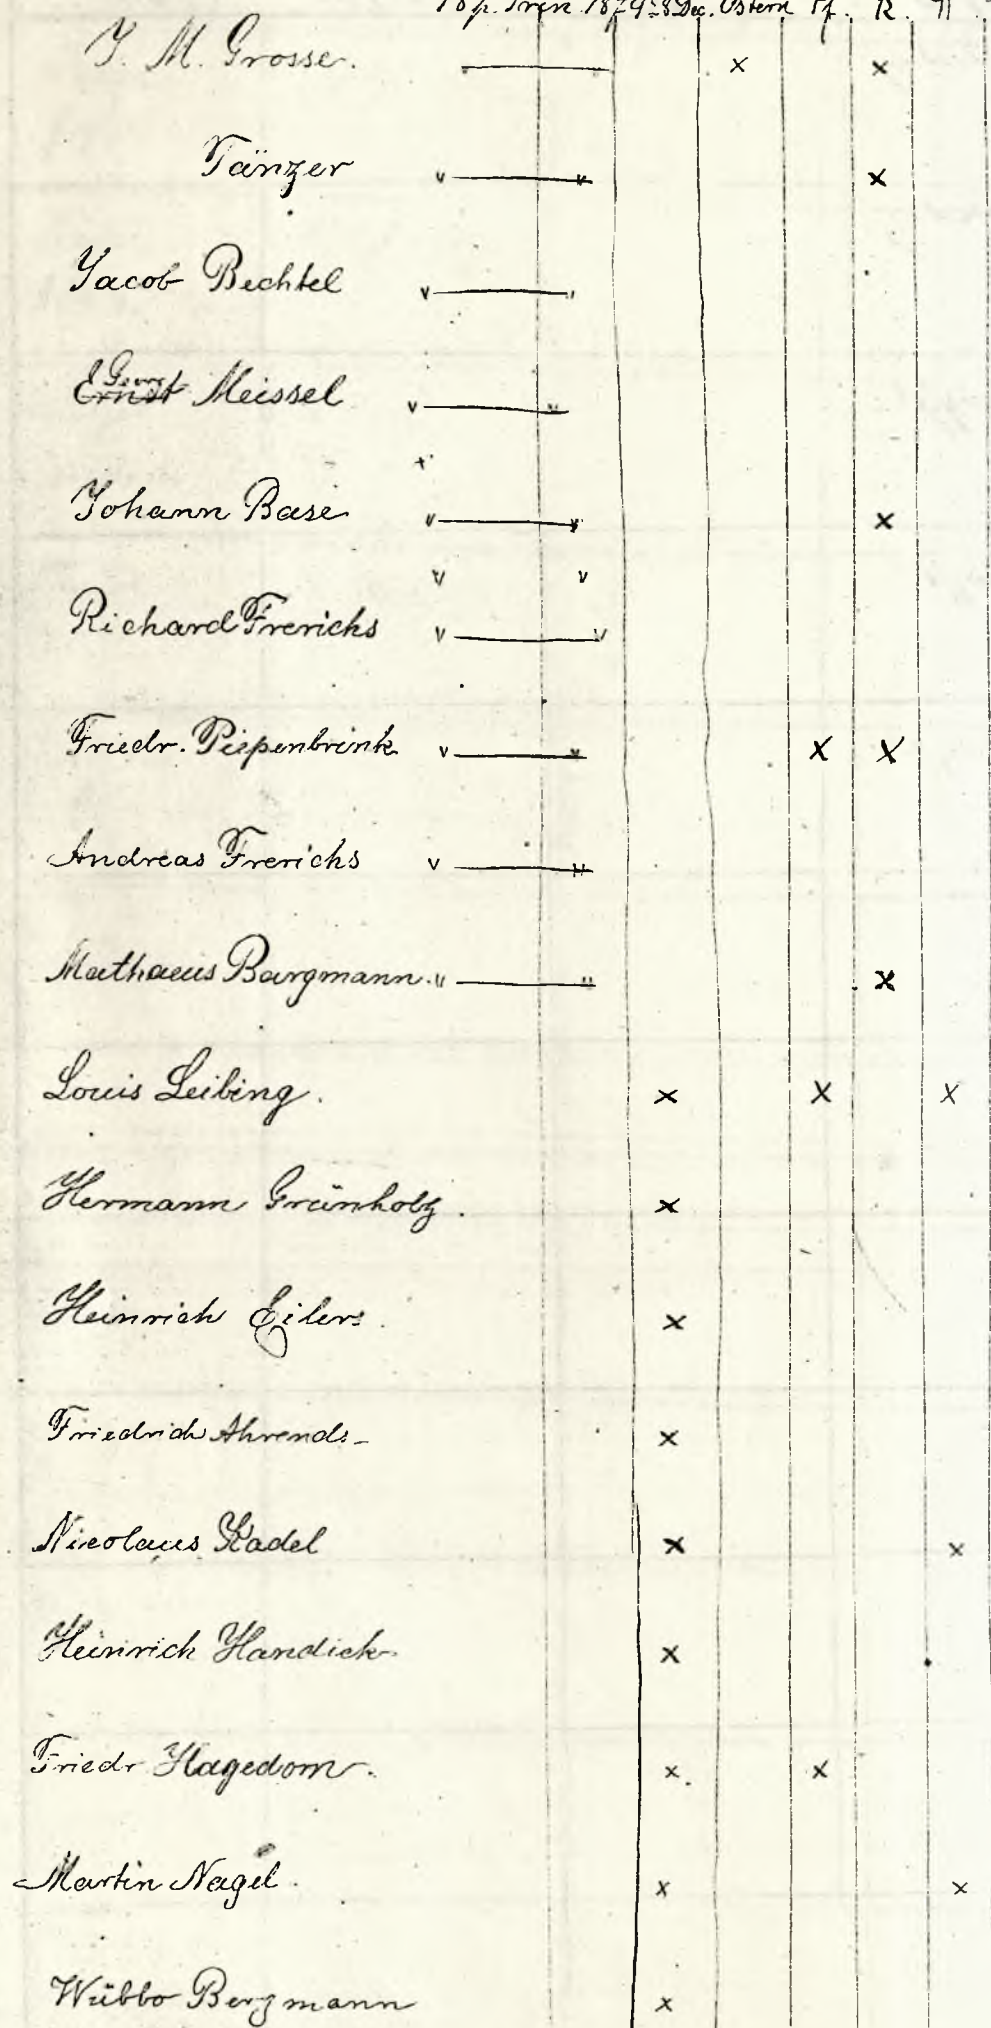 1879 8 Dec. Ostern Pf. R.
J. M. Grosse. x x
Tänzer v v x
Jacob Bechtel v "
Ernst Georg Meissel v "
Johann Base v v x
v v
Richard Frerichs v v
Friedr. Piepenbrink v v x x
Andreas Frerichs v "
Mathaeus Bargmann " " x
Louis Leibing. x x x
Hermann Grünholz. x
Heinrich Eilers. x
Friedrich Ahrends x
Nicolaus Kadel x x
Heinrich Handick x
Friedr Hagedorn. x x
Martin Nagel. x x
Wübbo Bergmann x